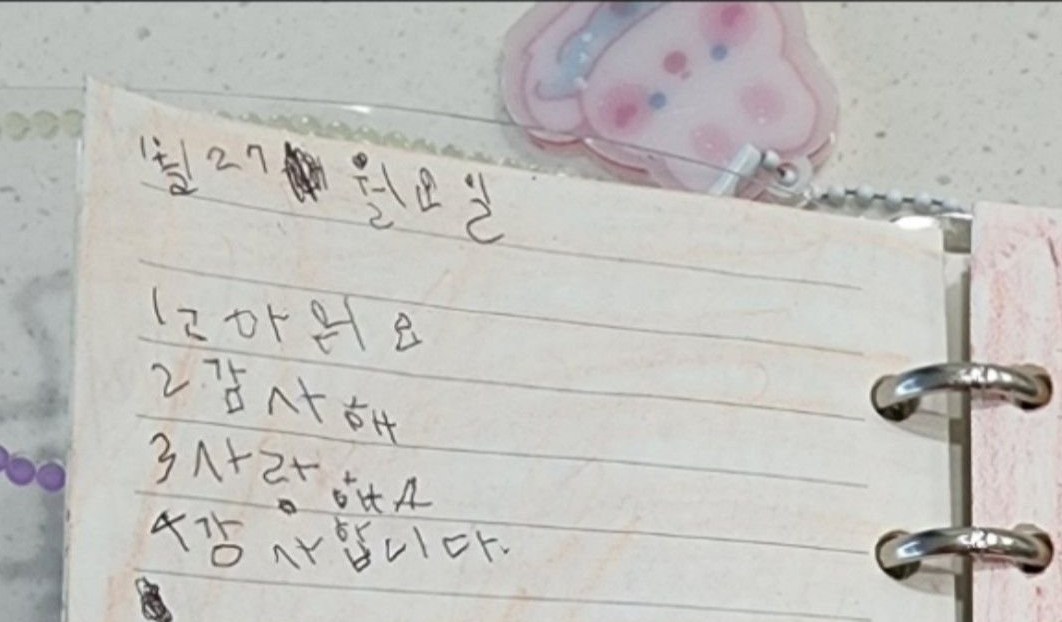 1월 27 월요일
1 고마워요
2 감사해
3 사랑해요
4 감사합니다.